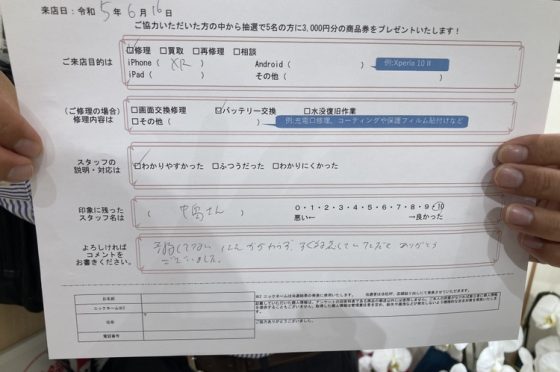 来店日：令和5年6月16日
ご協力いただいた方の中から抽選で5名の方に3,000円分の商品券をプレゼントいたします！
ご来店目的は
☑修理 □買取 □再修理 □相談
iPhone（ XR ） Android（ ） 例:Xperia 10 II
iPad（ ） その他（ ）
（ご修理の場合）
修理内容は
□画面交換修理 ☑バッテリー交換 □水没復旧作業
□その他（ ） 例:充電口修理、コーティングや保護フィルム貼付けなど
スタッフの
説明・対応は
☑わかりやすかった □ふつうだった □わかりにくかった
印象に残った
スタッフ名は
（ 中島さん ）
0・1・2・3・4・5・6・7・8・9・10
悪い← →良かった
よろしければ
コメントを
お書きください。
予約してない にもかかわらず、すぐ対応していただき ありがとう
ございました。
お名前
ニックネーム※2
住所
電話番号
ご協力ありがとうございました。